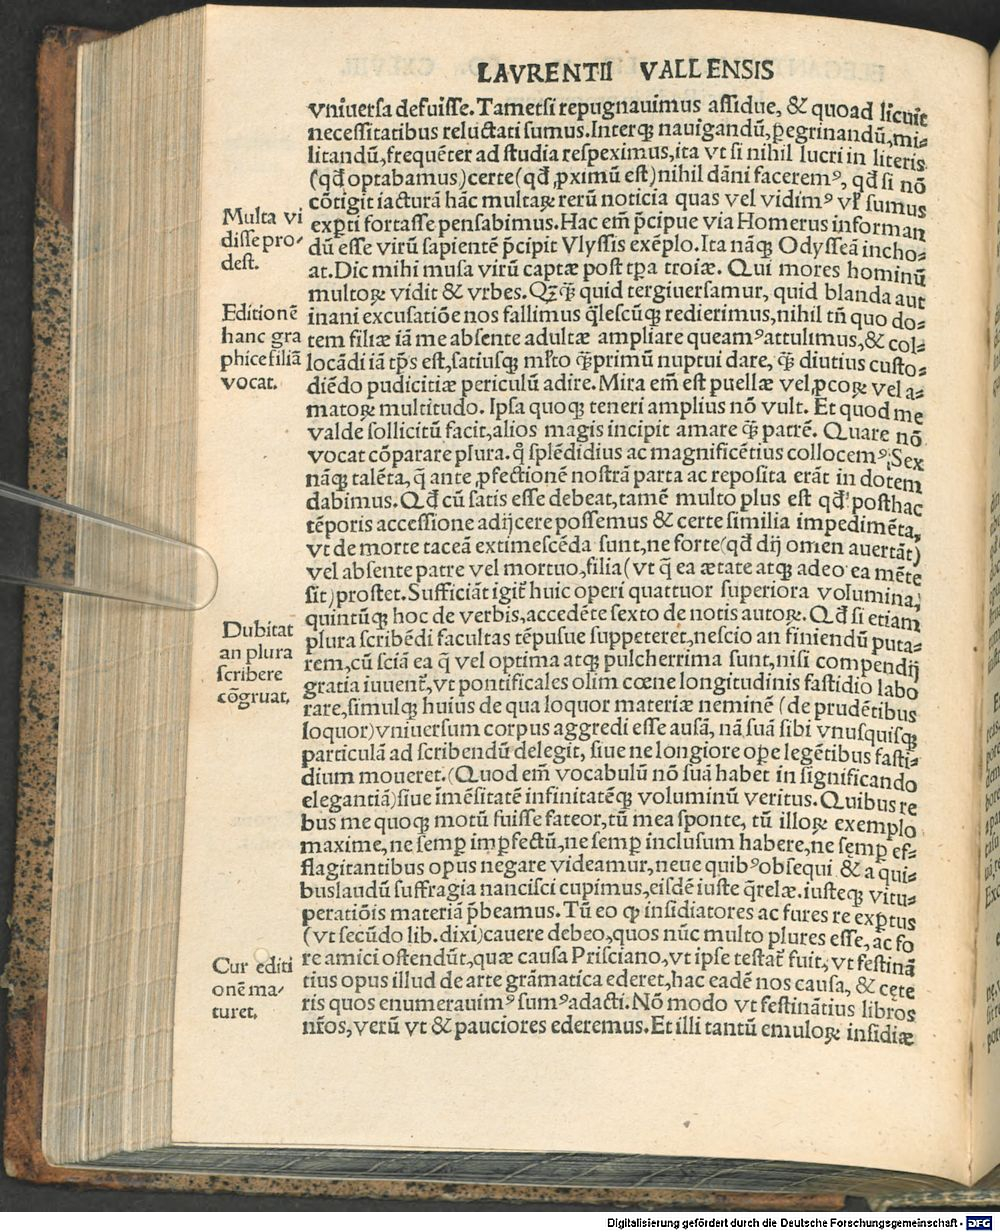 LAVRENTII VALLENSIS
vniuersa defuisse. Tametsi repugnauimus assidue, & quoad licuit
necessitatibus reluctati sumus. Interqꝫ nauigandū, ꝑegrinandū, mi⸗
litandū, frequēter ad studia respeximus, ita vt si nihil lucri in literis
(qđ optabamus) certe (qđ ꝓximū est) nihil dāni faceremꝰ, qđ si nō
cōtigit iacturā hāc multaꝝ rerū noticia quas vel vidimꝰ vł sumus
Multa vi
disse pro⸗
dest.
exꝑti fortasse pensabimus. Hac em̄ p̄cipue via Homerus informan
dū esse virū sapientē p̄cipit Vlyssis exēplo. Ita nāqꝫ Odysseā incho⸗
at. Dic mihi musa virū captæ post tꝑa troiæ. Qui mores hominū
multoꝝ vidit & vrbes. Qꝫqꝫ̄ quid tergiuersamur, quid blanda aut
Editionē
hanc gra
phice filiā
vocat.
inani excusatiōe nos fallimus q̄lescūqꝫ redierimus, nihil tn̄ quo do⸗
tem filiæ iā me absente adultæ ampliare queamꝰ attulimus, & col⸗
locādi iā tp̄s est, satiusqꝫ mł̄to qꝫ̄primū nuptui dare, qꝫ̄ diutius custo⸗
diēdo pudicitiæ periculū adire. Mira em̄ est puellæ vel ꝓcoꝝ vel a⸗
matoꝝ multitudo. Ipsa quoqꝫ teneri amplius nō vult. Et quod me
valde sollicitū facit, alios magis incipit amare qꝫ̄ patrē. Quare nō
vocat cōparare plura. qͦ splēdidius ac magnificētius collocemꝰ; Sex
nāqꝫ talēta, q̄ ante ꝓfectionē nostrā parta ac reposita erāt in dotem
dabimus. Qđ cū satis esse debeat, tamē multo plus est qđ posthac
tēporis accessione adijcere possemus & certe similia impedimēta,
vt de morte taceā extimescēda sunt, ne forte (qđ dij omen auertāt)
vel absente patre vel mortuo, filia (vt q̄ ea ætate atqꝫ adeo ea mēte
sit) prostet. Sufficiāt igit᷑ huic operi quattuor superiora volumina,
quintūqꝫ hoc de verbis, accedēte sexto de notis autoꝝ. Qđ si etiam
Dubitat
an plura
scribere
cōgruat.
plura scribēdi facultas tēpusue suppeteret, nescio an finiendū puta⸗
rem, cū sciā ea q̄ vel optima atqꝫ pulcherrima sunt, nisi compendij
gratia iuuent᷑, vt pontificales olim cœne longitudinis fastidio labo
rare, simulqꝫ huius de qua loquor materiæ neminē (de prudētibus
loquor) vniuersum corpus aggredi esse ausā, nā suā sibi vnusquisqꝫ
particulā ad scribendū delegit, siue ne longiore oꝑe legētibus fasti⸗
dium moueret. (Quod em̄ vocabulū nō suā habet in significando
elegantiā) siue īmēsitatē infinitatēqꝫ voluminū veritus. Quibus re
bus me quoqꝫ motū fuisse fateor, tū mea sponte, tū illoꝝ exemplo
maxime, ne semꝑ imꝑfectū, ne semꝑ inclusum habere, ne semꝑ ef⸗
flagitantibus opus negare videamur, neue quibꝰ obsequi & a qui⸗
buslaudū suffragia nancisci cupimus, eisdē iuste q̄relæ. iusteqꝫ vitu⸗
peratiōis materiā p̄beamus. Tū eo ꝙ insidiatores ac fures re exꝑtus
(vt secūdo lib. dixi) cauere debeo, quos nūc multo plures esse, ac fo
Cur editi
onē ma⸗
turet.
re amici ostendūt, quæ causa Prisciano, vt ipse testat᷑ fuit, vt festinā
tius opus illud de arte grāmatica ederet, hac eadē nos causa, & cęte
ris quos enumerauimꝰ sumꝰ adacti. Nō modo vt festinātius libros
nr̄os, verū vt & pauciores ederemus. Et illi tantū emuloꝝ insidiæ
Digitalisierung gefördert durch die Deutsche Forschungsgemeinschaft - DFG